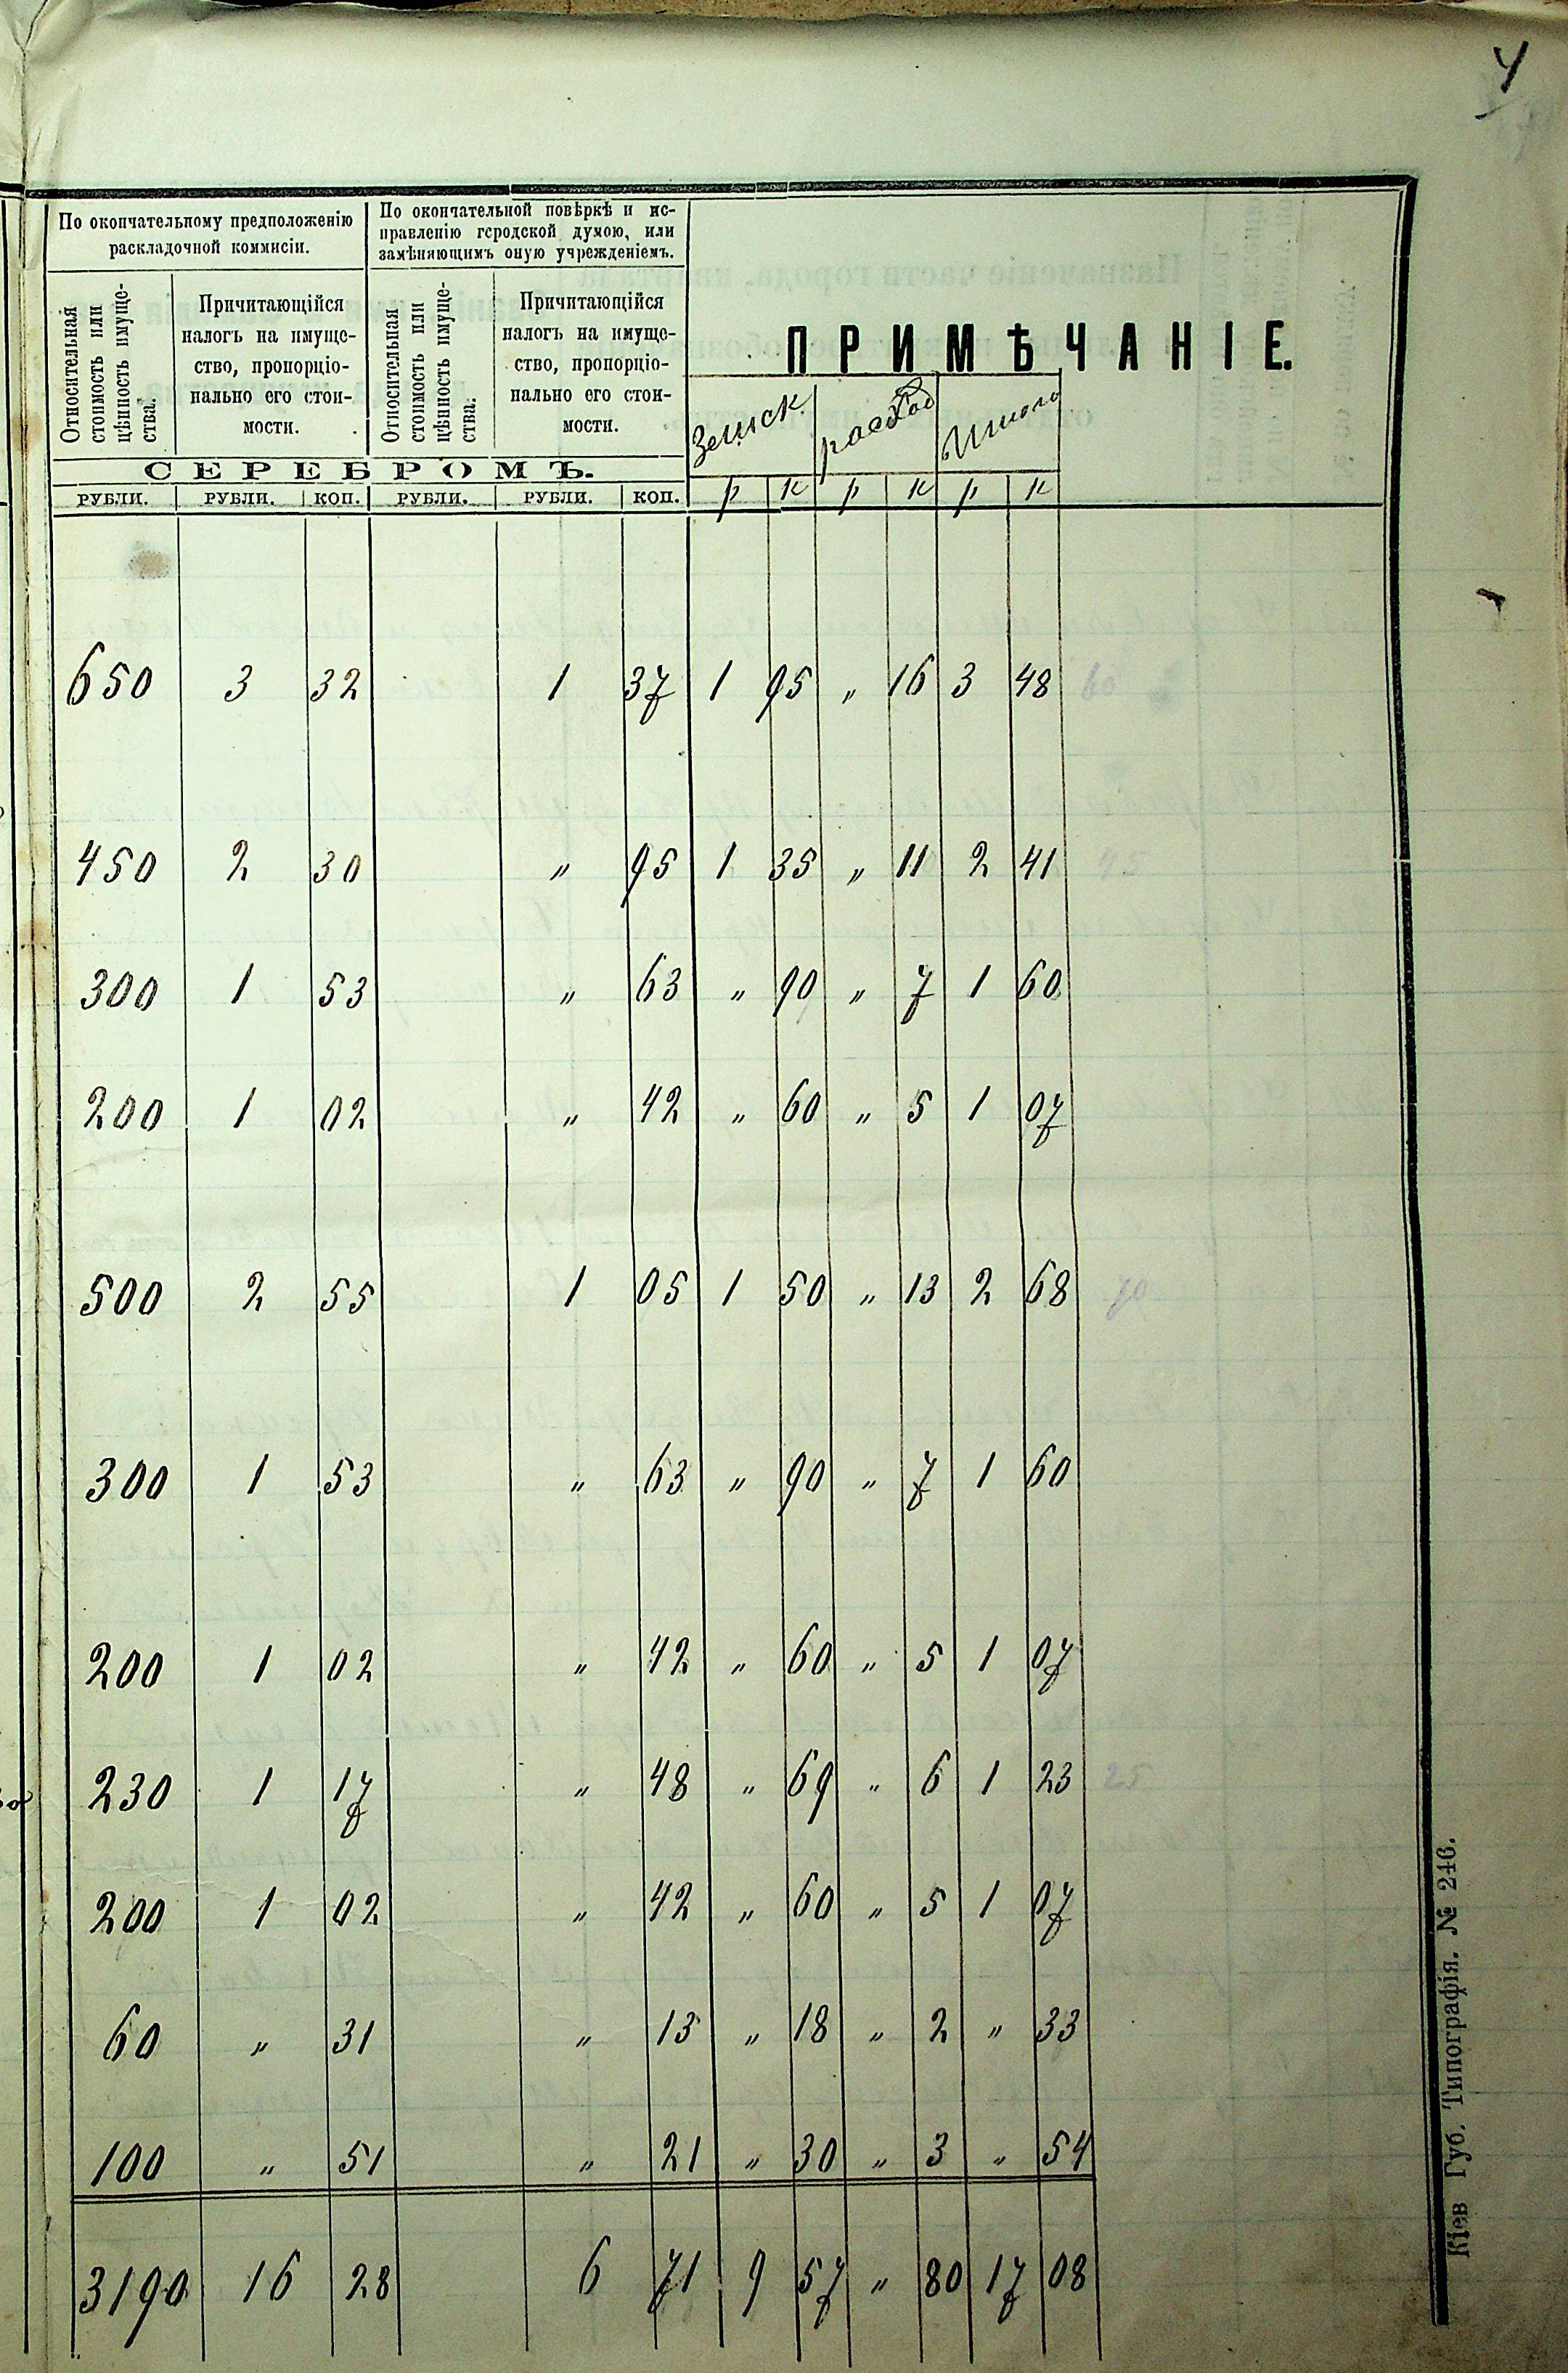 4
По окончательному предположенію
раскладочной коммисіи.
По окончательной повѣркѣ и ис-
правленію городской думою, или
замѣняющимъ оную учрежденіемъ.
Относительная
стоимость или
цѣнность имуще-
ства.
Причитающійся
налогъ на имуще-
ство, пропорціо-
нально его стои-
мости.
Относительная
стоимость или
цѣнность имуще-
ства.
Причитающійся
налогъ на имуще-
ство, пропорціо-
нально его стои-
мости.
ПРИМѢЧАНІЕ.
Земск. расход Итого
СЕРЕБРОМЪ.
РУБЛИ. РУБЛИ. КОП. РУБЛИ. РУБЛИ. КОП. р к р к р к
650 3 32 1 37 1 95 „ 16 3 48 60
450 2 30 „ 95 1 35 „ 11 2 41 45
300 1 53 „ 63 „ 90 „ 7 1 60
200 1 02 „ 42 „ 60 „ 5 1 07
500 2 55 1 05 1 50 „ 13 2 68 70
300 1 53 „ 63 „ 90 „ 7 1 60
200 1 02 „ 42 „ 60 „ 5 1 07
230 1 17 „ 48 „ 69 „ 6 1 23 25
200 1 02 „ 42 „ 60 „ 5 1 07
60 „ 31 „ 13 „ 18 „ 2 „ 33
100 „ 51 „ 21 „ 30 „ 3 „ 54
3190 16 28 6 71 9 57 „ 80 17 08
Кіев Губ. Типографія. № 246.